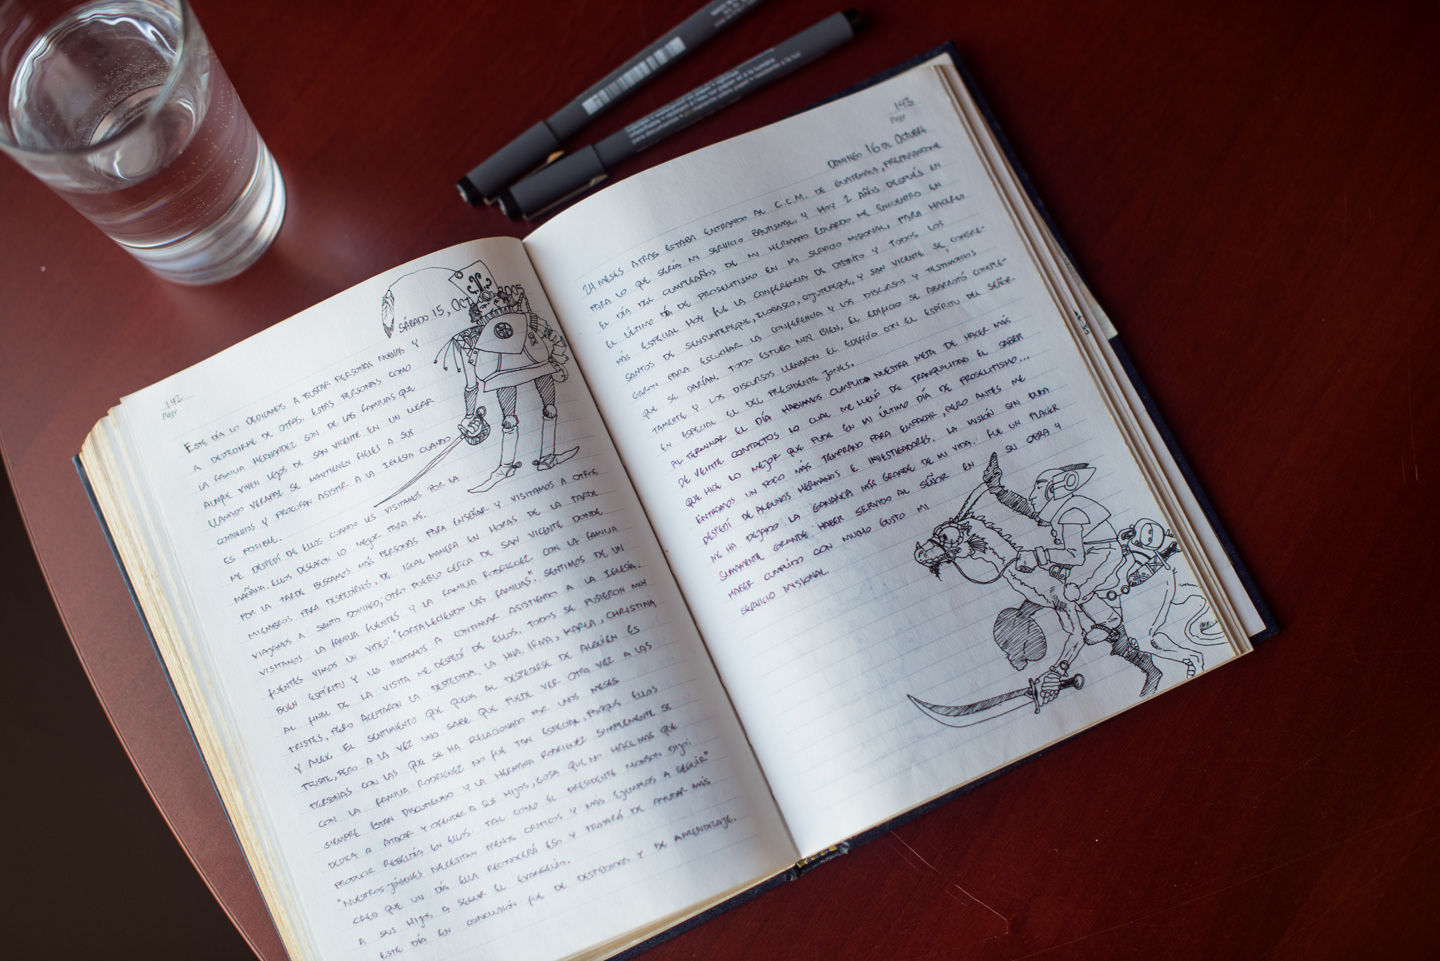 192
Page
SÁBADO 15, OCT
ESTE DÍA LO DEDICAMOS A BUSCAR PERSONAS NUEVAS Y
A DESPEDIRME DE OTRAS. ESTAS PERSONAS COMO
LA FAMILIA HERNANDEZ SON DE LAS FAMILIAS QUE
AUNQUE VIVEN LEJOS DE SAN VICENTE EN UN LUGAR
LLAMADO VERAPAZ SE MANTIENEN FIELES A SUS
CONVENIOS Y PROCURAN ASISTIR A LA IGLESIA CUANDO
ES POSIBLE.
ME DESPEDÍ DE ELLOS CUANDO LES VISITAMOS POR LA
MAÑANA. ELLOS DESEARON LO MEJOR PARA MÍ.
POR LA TARDE BUSCAMOS MÁS PERSONAS PARA ENSEÑAR Y VISITAMOS A OTROS
MIEMBROS PARA DESPEDIRNOS, DE IGUAL MANERA EN HORAS DE LA TARDE
VIAJAMOS A SANTO DOMINGO, OTRO PUEBLO CERCA DE SAN VICENTE DONDE
VISITAMOS LA FAMILIA FUENTES Y LA FAMILIA RODRIGUEZ CON LA FAMILIA
FUENTES VIMOS UN VIDEO: "FORTALECIENDO LAS FAMILIAS". SENTIMOS DE UN
BUEN ESPÍRITU Y LES INVITAMOS A CONTINUAR ASISTIENDO A LA IGLESIA.
AL FINAL DE LA VISITA ME DESPEDÍ DE ELLOS. TODOS SE PUSIERON MUY
TRISTES, PERO ACEPTARON LA DESPEDIDA, LA HNA IRMA, KARLA, CHRISTINA
Y ALEX. EL SENTIMIENTO QUE QUEDA AL DESPEDIRSE DE ALGUIEN ES
TRISTE, PERO A LA VEZ UNO SABE QUE PUEDE VER OTRA VEZ A LAS
PERSONAS CON LAS QUE SE HA RELACIONADO POR UNOS MESES
CON LA FAMILIA RODRIGUEZ NO FUE TAN ESPECIAL, PORQUE ELLOS
SIEMPRE ESTAN DISCUTIENDO Y LA HERMANA RODRIGUEZ SIMPLEMENTE SE
DEDICA A ATACAR Y OFENDER A SUS HIJOS, COSA QUE NO HACE MAS QUE
PRODUCIR REBELDÍA EN ELLOS. TAL COMO EL PRESIDENTE MONSON DIJO:
"NUESTROS JÓVENES NECESITAN MENOS CRITICOS Y MÁS EJEMPLOS A SEGUIR"
CREO QUE UN DÍA ELLA RECONOCERÁ ESO Y TRATARÁ DE AYUDAR MÁS
A SUS HIJOS A SEGUIR EL EVANGELIO.
ESTE DÍA EN CONCLUSIÓN FUE DE DESPEDIDAS Y DE APRENDIZAJE.
193
Page
DOMINGO 16 DE OCTUBRE
24 MESES ATRAS ESTABA ENTRANDO AL C.C.M. DE GUATEMALA, PREPARANDOME
PARA LO QUE SERÍA MI SERVICIO BAUTISMAL, Y HOY 2 AÑOS DESPUÉS EN
EL DÍA DEL CUMPLEAÑOS DE MI HERMANO EDUARDO ME ENCUENTRO EN
EL ÚLTIMO DÍA DE PROSELITISMO EN MI SERVICIO MISIONAL, PARA HACERLO
MÁS ESPECIAL HOY FUE LA CONFERENCIA DE DISTRITO Y TODOS LOS
SANTOS DE SENSUNTEPEQUE, ILOBASCO, COJUTEPEQUE, Y SAN VICENTE SE CONGRE-
GARON PARA ESCUCHAR LA CONFERENCIA Y LOS DISCURSOS Y TESTIMONIOS
QUE SE DARÍAN. TODO ESTUVO MUY BIEN, EL EDIFICIO SE ABARROTÓ COMPLE-
TAMENTE Y LOS DISCURSOS LLENARON EL EDIFICIO CON EL ESPÍRITU DEL SEÑOR.
EN ESPECIAL EL DEL PRESIDENTE JONES.
AL TERMINAR EL DÍA HABIAMOS CUMPLIDO NUESTRA META DE HACER MÁS
DE VEINTE CONTACTOS LO CUAL ME LLENÓ DE TRANQUILIDAD EL SABER
QUE HICE LO MEJOR QUE PUDE EN MI ÚLTIMO DÍA DE PROSELITISMO...
ENTRAMOS UN POCO MÁS TEMPRANO PARA EMPACAR, PERO ANTES ME
DESPEDÍ DE ALGUNOS HERMANOS E INVESTIGADORES. LA MISIÓN SIN DUDA
ME HA DEJADO LA GANANCIA MÁS GRANDE DE MI VIDA. FUE UN PLACER
SUMAMENTE GRANDE HABER SERVIDO AL SEÑOR EN SU OBRA Y
HABER CUMPLIDO CON MUCHO GUSTO MI
SERVICIO MISIONAL